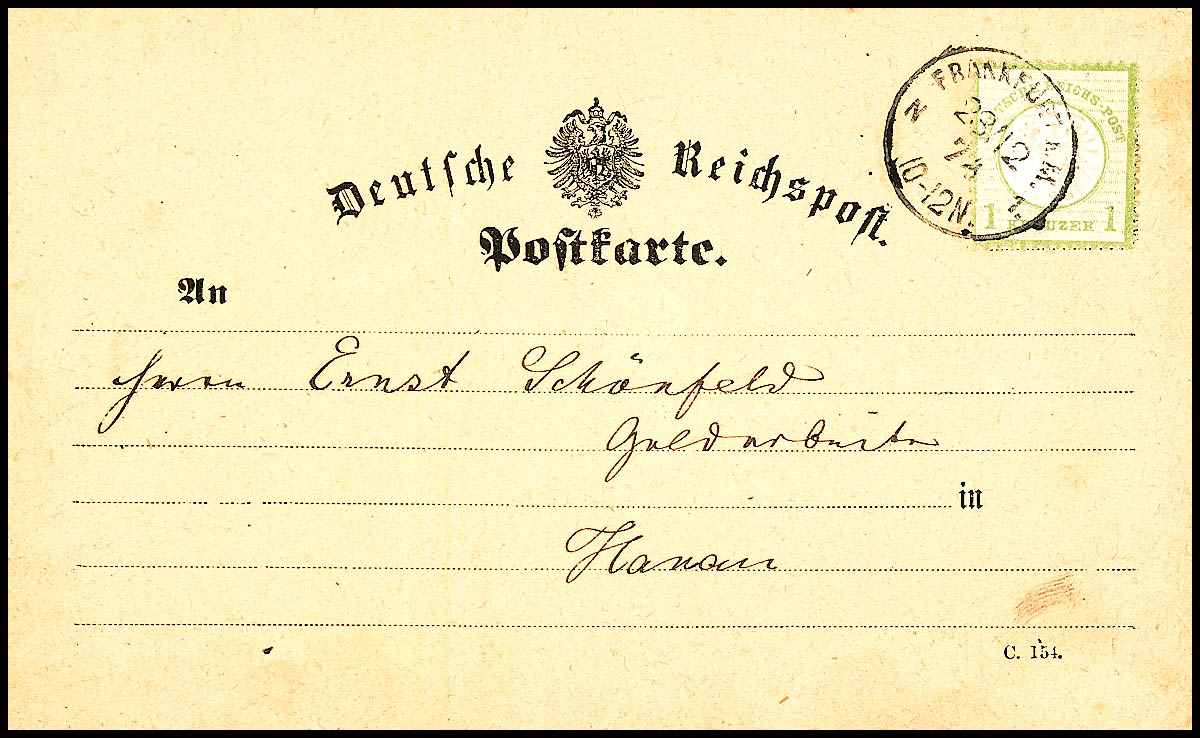 Deutsche Reichspost.
Postkarte.
FRANKFURT A. M.
N
23/12
74
10-12N.
1.
DEUTSCHE REICHS-POST
1 KREUZER 1
An
Herrn Ernst Schönfeld
Goldarbeiter
in
Hanau
C. 154.